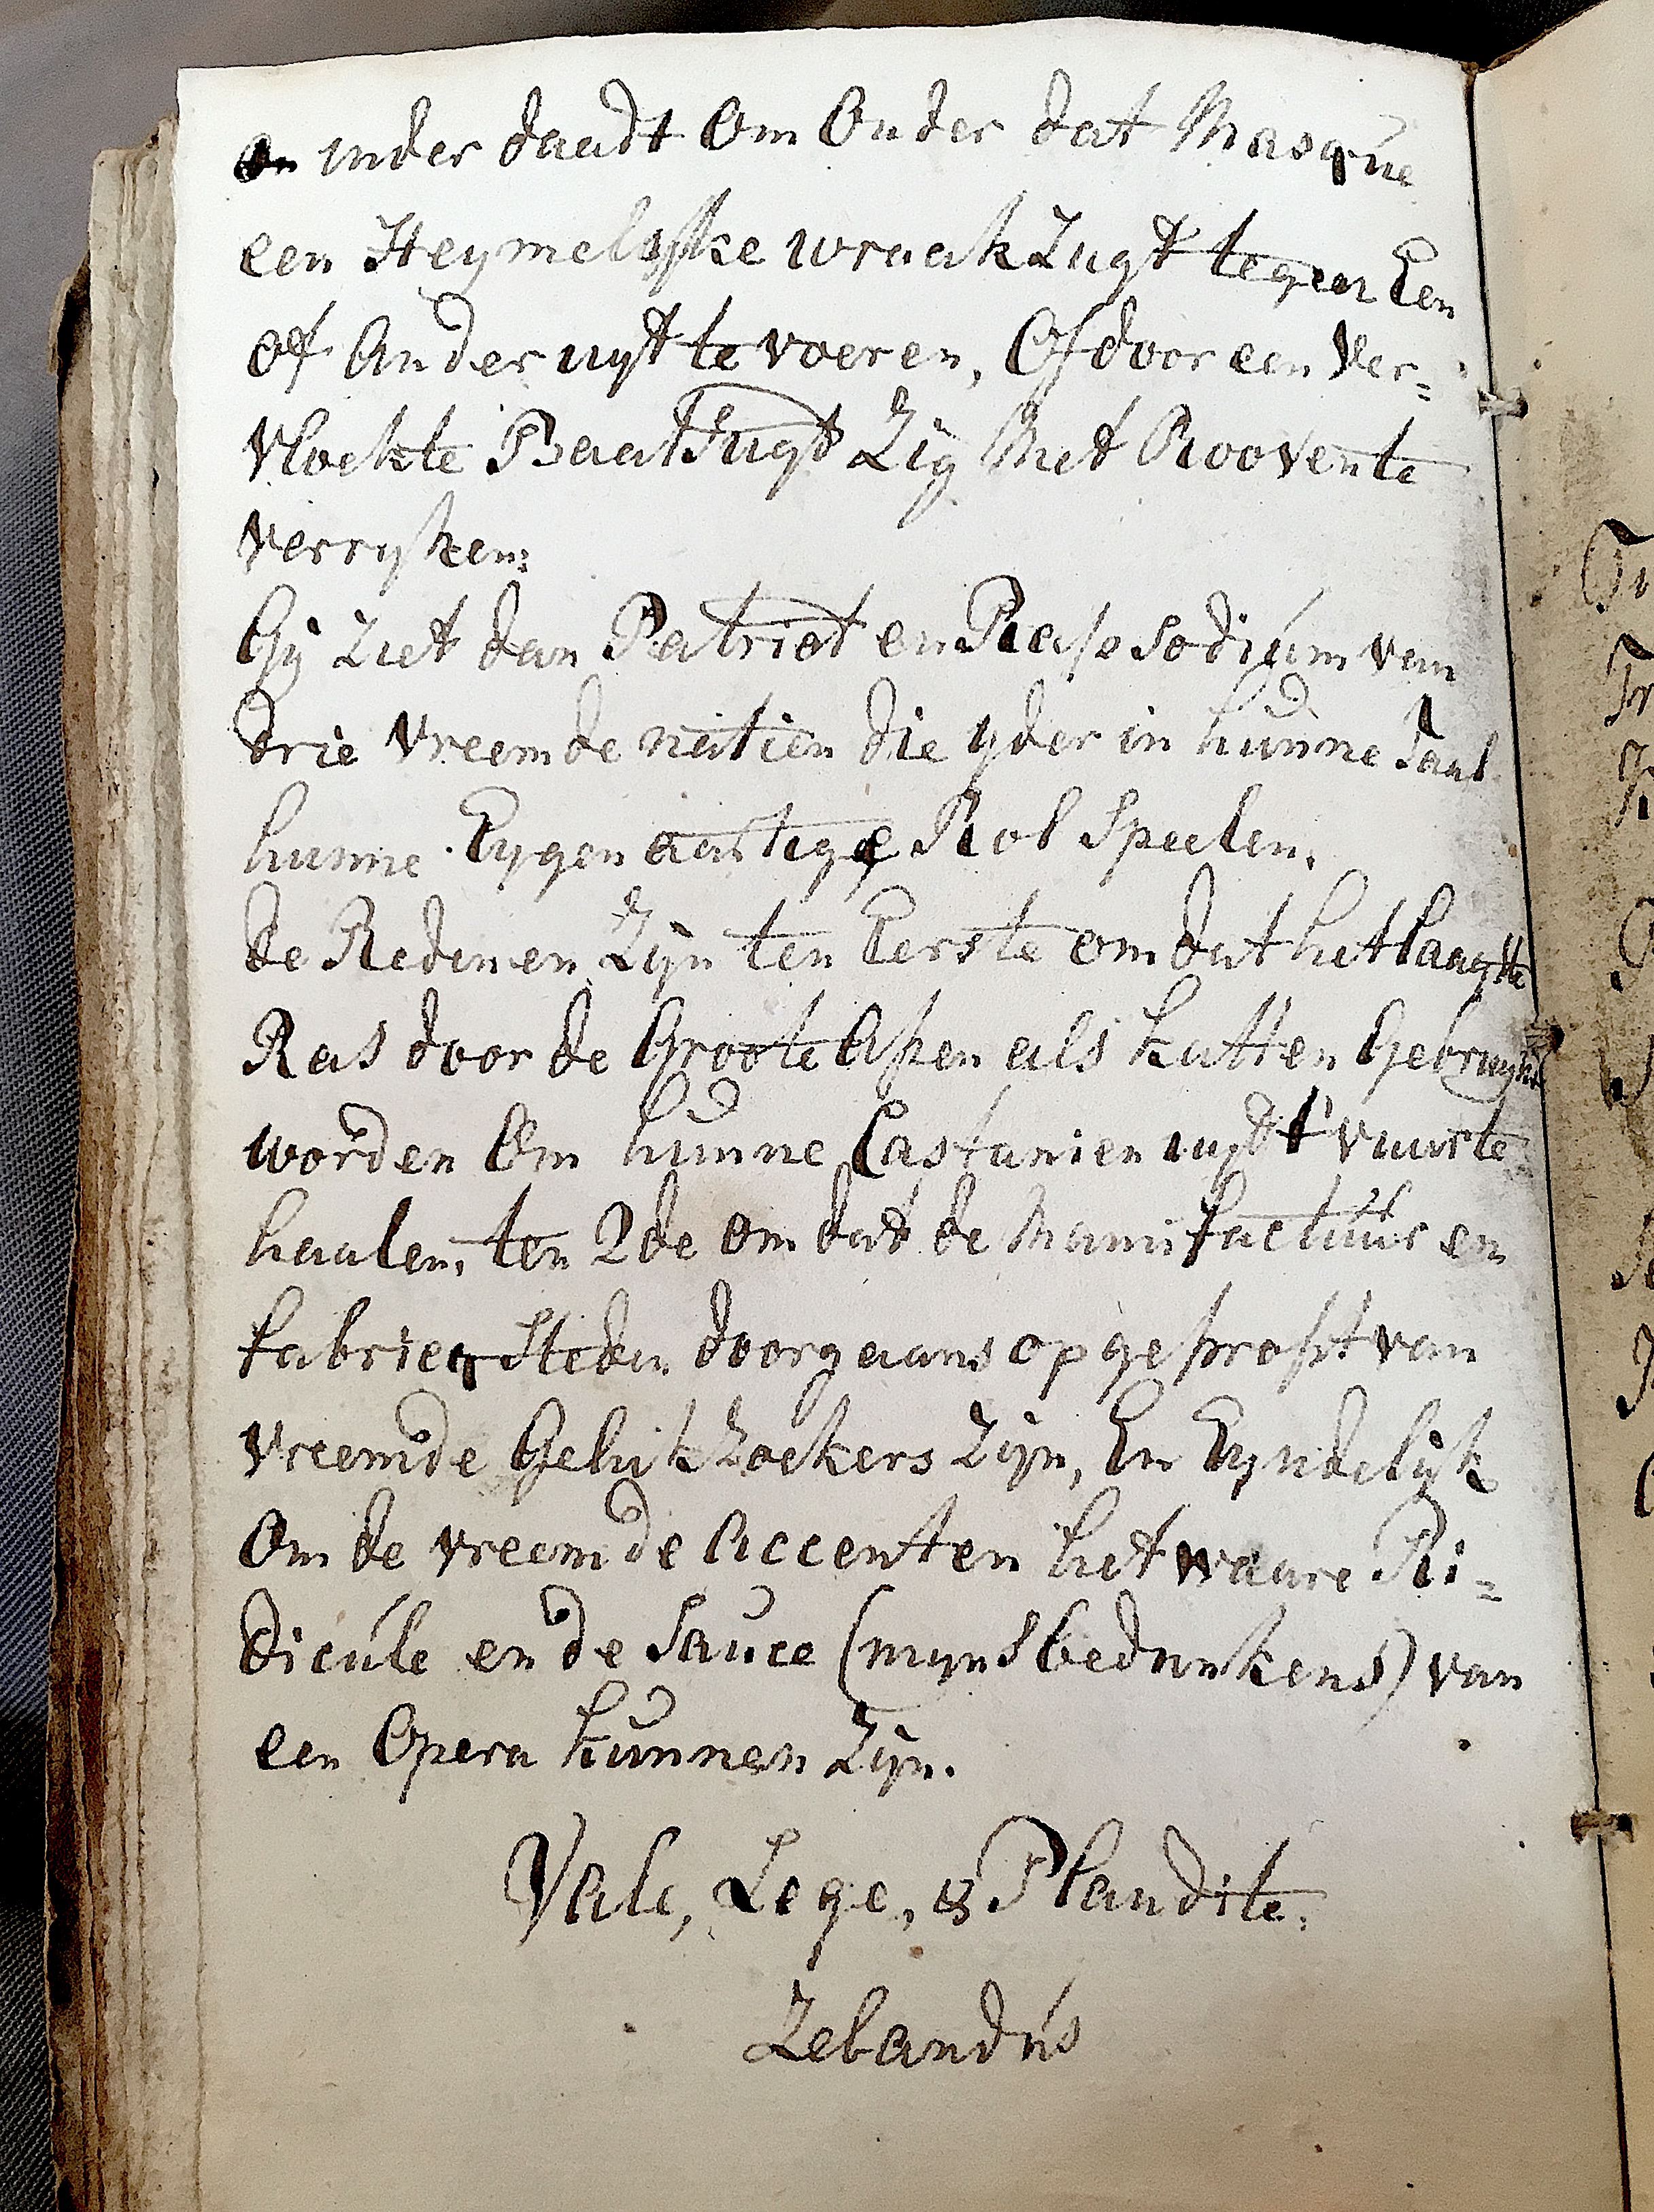 en inder daadt Om Onder dat Masque
een Heymelyke wraakZugt tegen Een
of Ander uyt te voeren, Of door een Ver=
Vloekte BaatZugt Zig Met Rooven te
Verryken:
Gij Ziet dan Patriot en Rapsodium van
drie Vreemde natien die yder in hunne Taal
hunne Eygenaartige Rol Speelen.
de Redenen Zijn ten Eerste om dat het laagste
Ras door de Groote Apen als Katten Gebruykt
worden Om hunne Castanien uyt 't vuur te
haalen, ten 2de om dat de Manufactuur en
fabrieq Steden doorgaans opgepropt van
vreemde Geluk Zoekers Zijn, En Eyndelijk
Om de vreemde Accenten het waare Ri=
dicule en de Sauce (myns bedunkens) van
een Opera kunnen Zijn.
Vale, Lege, & Plaudite.
Zelandus